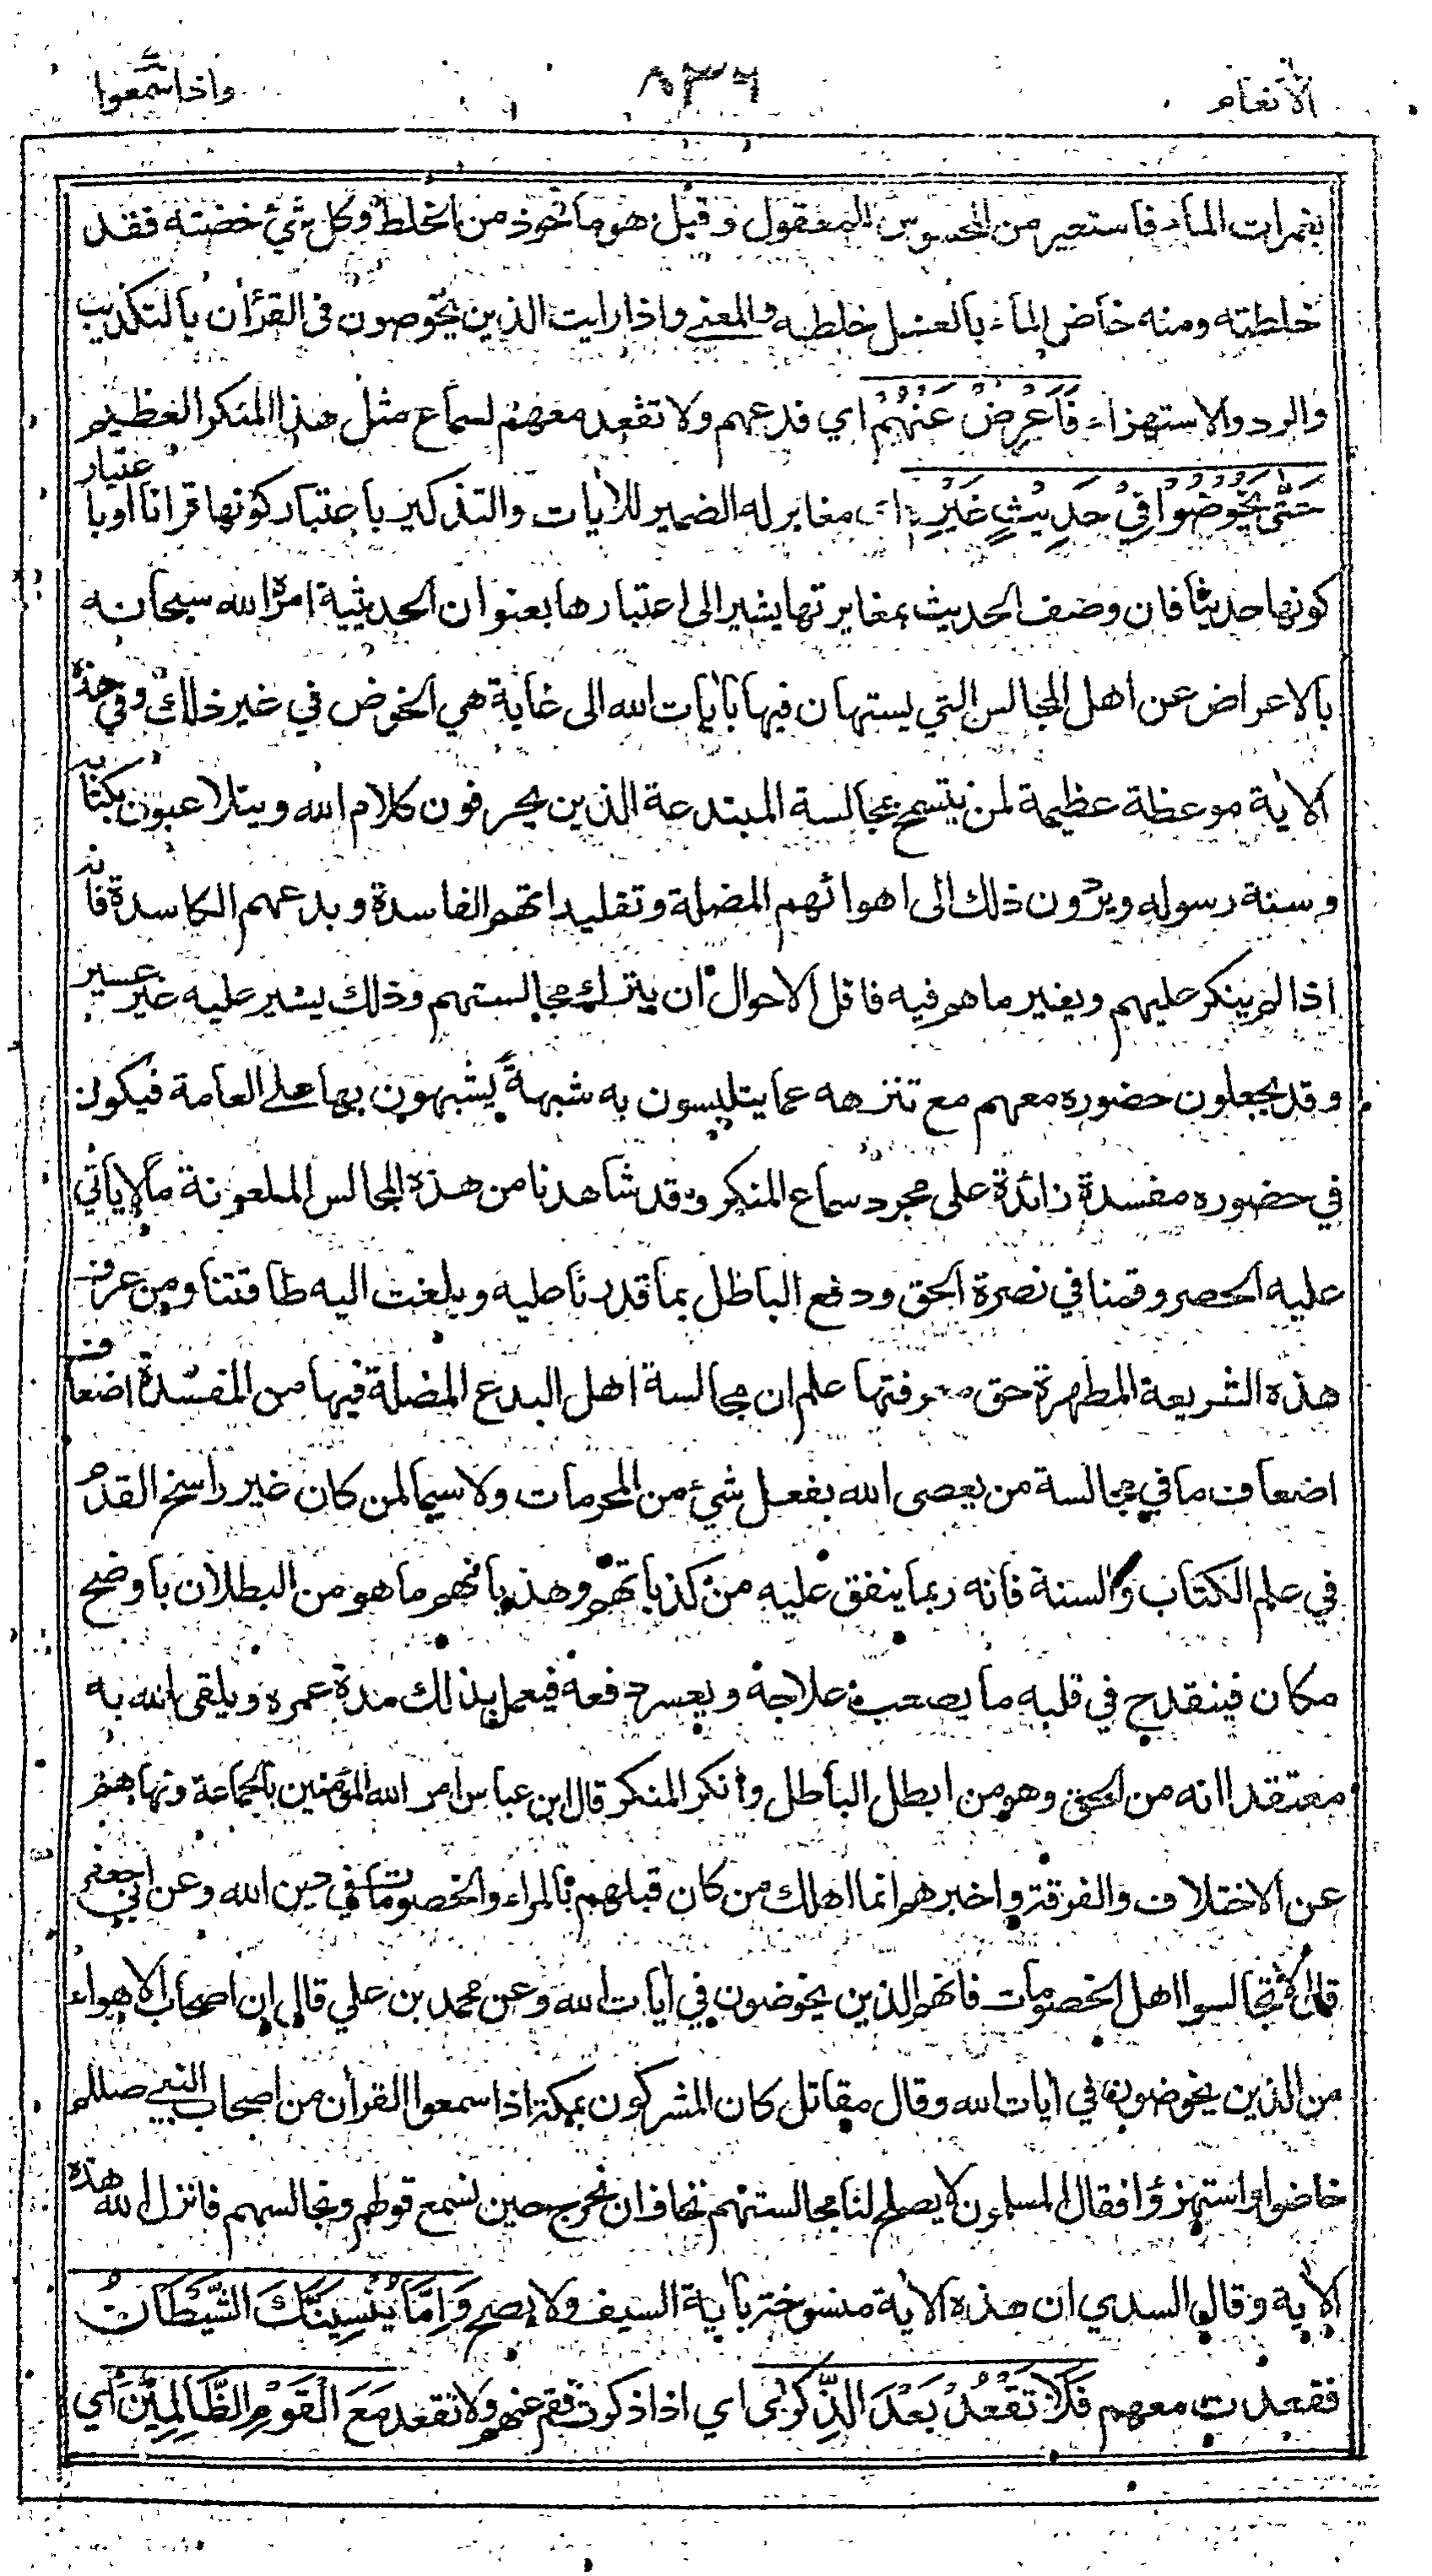 الانعام
٨٣٦
واذا سمعوا
بغمرات الماء فاستعير من المحسوس للمعقول وقيل هو ماخوذ من الخلط وكل شيء خضته فقد
خلطته ومنه خاض الماء بالعسل خلطه والمعنى واذا رايت الذين يخوضون في القرآن بالتكذيب
والرد والاستهزاء فَاَعْرِضْ عَنْهُمْ اي فدعهم ولا تقعد معهم لسماع مثل هذا المنكر العظيم
حَتّٰى يَخُوْضُوْا فِيْ حَدِيْثٍ غَيْرِهٖ اي مغاير له الضمير للآيات والتذكير باعتبار كونها قرآنا او باعتبار
كونها حديثا فان وصف الحديث بمغايرتها يشير الى اعتبارها بعنوان الحديثية امره الله سبحانه
بالاعراض عن اهل المجالس التي يستهان فيها بآيات الله الى غاية هي الخوض في غير ذلك وفي هذه
الآية موعظة عظيمة لمن يتسمح بمجالسة المبتدعة الذين يحرفون كلام الله ويتلاعبون بكتابه
وسنة رسوله ويردون ذلك الى اهوائهم المضلة وتقليداتهم الفاسدة وبدعهم الكاسدة فانه
اذا لم ينكر عليهم ويغير ما هم فيه فاقل الاحوال ان يترك مجالستهم وذلك يسير عليه غير عسير
وقد يجعلون حضوره معهم مع تنزهه عما يتلبسون به شبهةً يشبهون بها على العامة فيكون
في حضوره مفسدة زائدة على مجرد سماع المنكر وقد شاهدنا من هذه المجالس الملعونة ما لا ياتي
عليه الحصر وقمنا في نصرة الحق ودفع الباطل بما قدرنا عليه وبلغت اليه طاقتنا ومن عرف
هذه الشريعة المطهرة حق معرفتها علم ان مجالسة اهل البدع المضلة فيها من المفسدة اضعاف
اضعاف ما في مجالسة من يعصى الله بفعل شيء من المحرمات ولا سيما لمن كان غير راسخ القدم
في علم الكتاب والسنة فانه ربما ينفق عليه من كذباتهم وهذيانهم ما هو من البطلان باوضح
مكان فينقدح في قلبه ما يصعب علاجه ويعسر دفعه فيعمل بذلك مدة عمره ويلقى الله به
معتقدا انه من الحق وهو من ابطل الباطل وانكر المنكر قال ابن عباس امر الله المؤمنين بالجماعة ونهاهم
عن الاختلاف والفرقة واخبرهم انما اهلك من كان قبلهم بالمراء والخصومات في دين الله وعن ابي جعفر
قال لا تجالسوا اهل الخصومات فانهم الذين يخوضون في آيات الله وعن محمد بن علي قال ان اصحاب الاهواء
من الذين يخوضون في آيات الله وقال مقاتل كان المشركون بمكة اذا سمعوا القرآن من اصحاب النبي صللم
خاضوا واستهزؤا فقال المسلمون لا يصلح لنا مجالستهم نخاف ان نخرج حين نسمع قولهم ونجالسهم فانزل الله هذه
الآية وقال السدي ان هذه الآية منسوخة بآية السيف ولا يصح وَاِمَّا يُنْسِيَنَّكَ الشَّيْطَانُ
فقعدت معهم فَلَا تَقْعُدْ بَعْدَ الذِّكْرٰى اي اذا ذكرت فقم عنهم ولا تقعد مَعَ الْقَوْمِ الظَّالِمِيْنَ اي